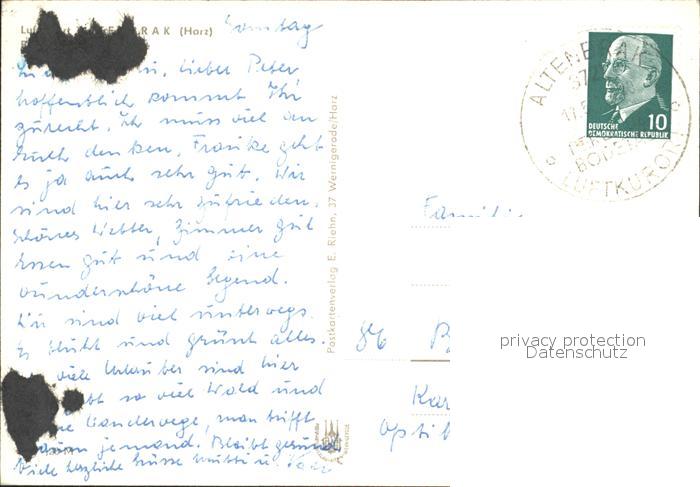 Sonntag
R A K (Harz)
lieber Peter
hoffentlich kommt Ihr
zurecht. Ich muss viel an
Euch denken, Frauke geht
es ja auch sehr gut. Wir
sind hier sehr zufrieden.
Schönes Wetter, Zimmer gut
Essen gut und eine
wunderschöne Gegend.
Wir sind viel unterwegs.
Es blüht und grünt alles.
viele Urlauber sind hier
so viel Wald und
Wanderwege, man trifft
kaum jemand. Bleibt gesund
Viele herzliche Grüsse Mutti u. Vati
Postkartenverlag E. Riehn, 37 Wernigerode/Harz
ALTENBRAK
372
17.5
BODETAL
LUFTKURORT
10
DEUTSCHE
DEMOKRATISCHE REPUBLIK
Famili
86 P
Kar
Opti
privacy protection
Datenschutz